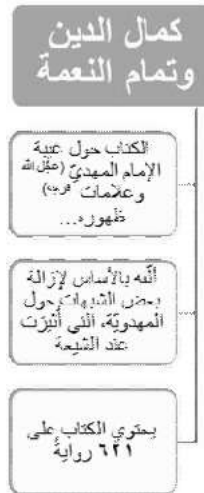 كمال الدين
وتمام النعمة
الكتاب حول غيبة
الإمام المهديّ (عجّل الله
وعلامات فرجه)
ظهوره...
ألّفه بالأساس لإزالة
بعض الشبهات حول
المهدويّة، التي أُثيرت
عند الشيعة
يحتوي الكتاب على
٦٢١ روايةً